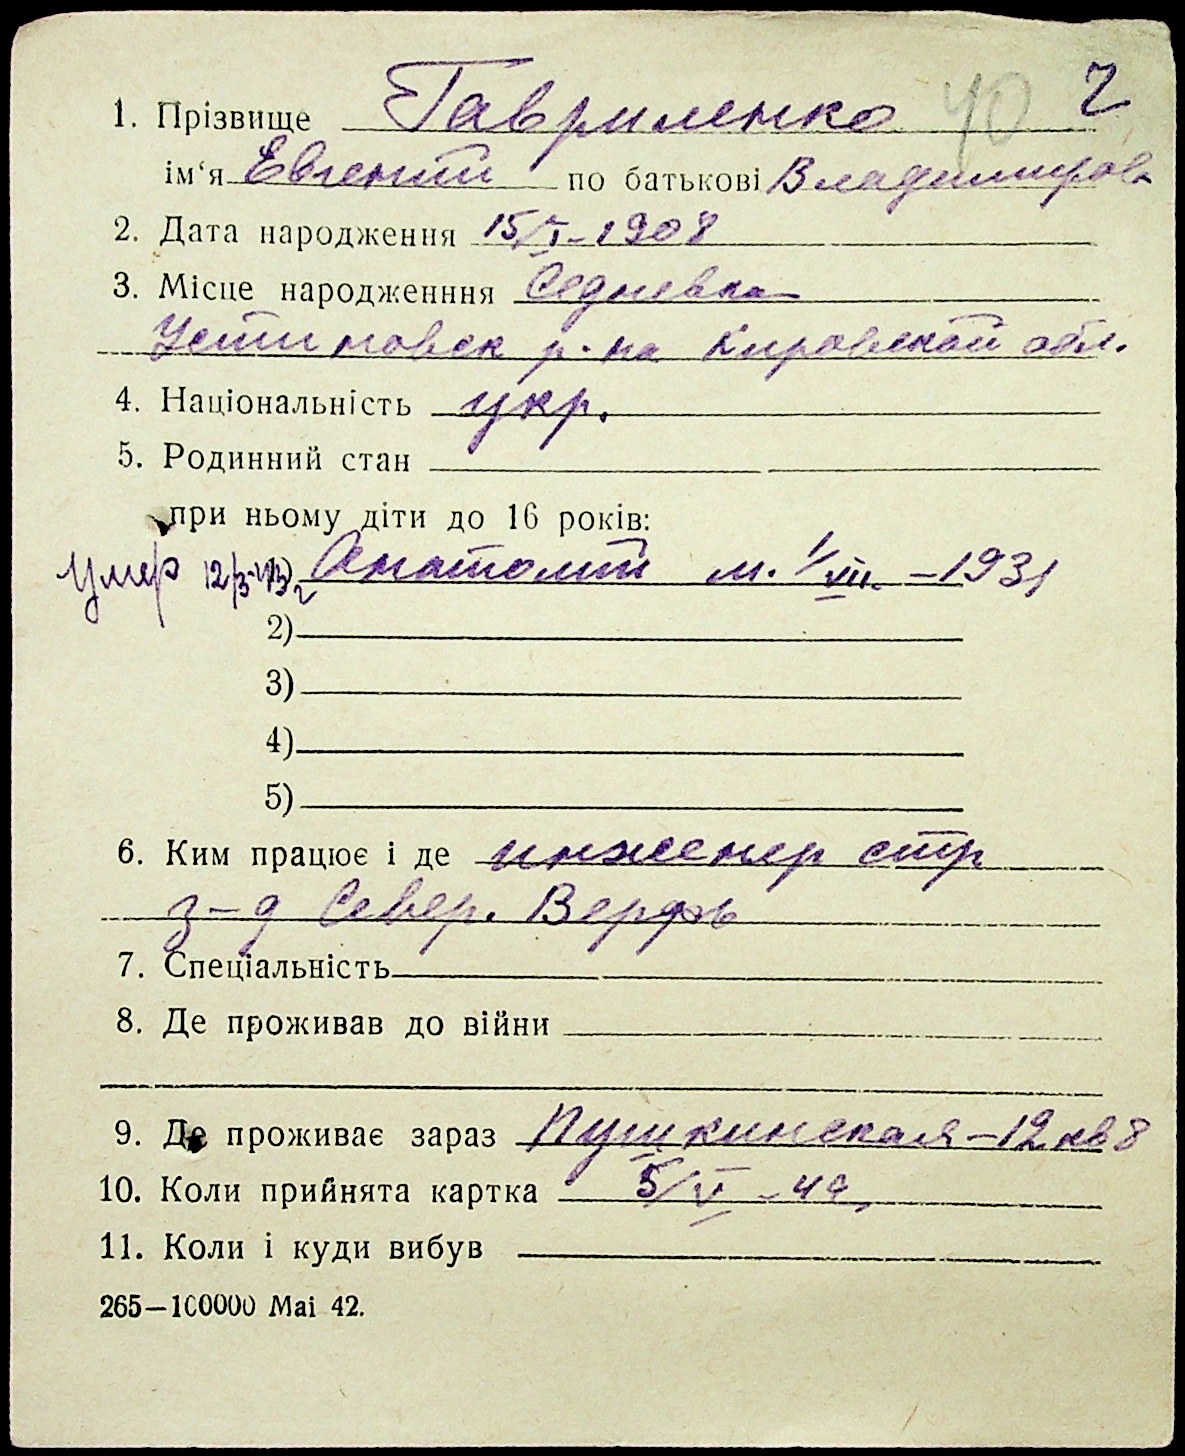 1. Прізвище Гавриленко 40 Ч
ім'я Евгений по батькові Владимиров
2. Дата народження 15/I-1908
3. Місце народженння Седневка
Устиновск р-на Кировской обл.
4. Національність укр.
5. Родинний стан
при ньому діти до 16 років:
Умер 1) Анатолий м. 1/VII - 1931
2)
3)
4)
5)
6. Ким працює і де инженер стр
з-д Север. Верфь
7. Спеціальність
8. Де проживав до війни
9. Де проживає зараз Пушкинская-12 кв 8
10. Коли прийнята картка 5/V-42
11. Коли і куди вибув
265—100000 Mai 42.